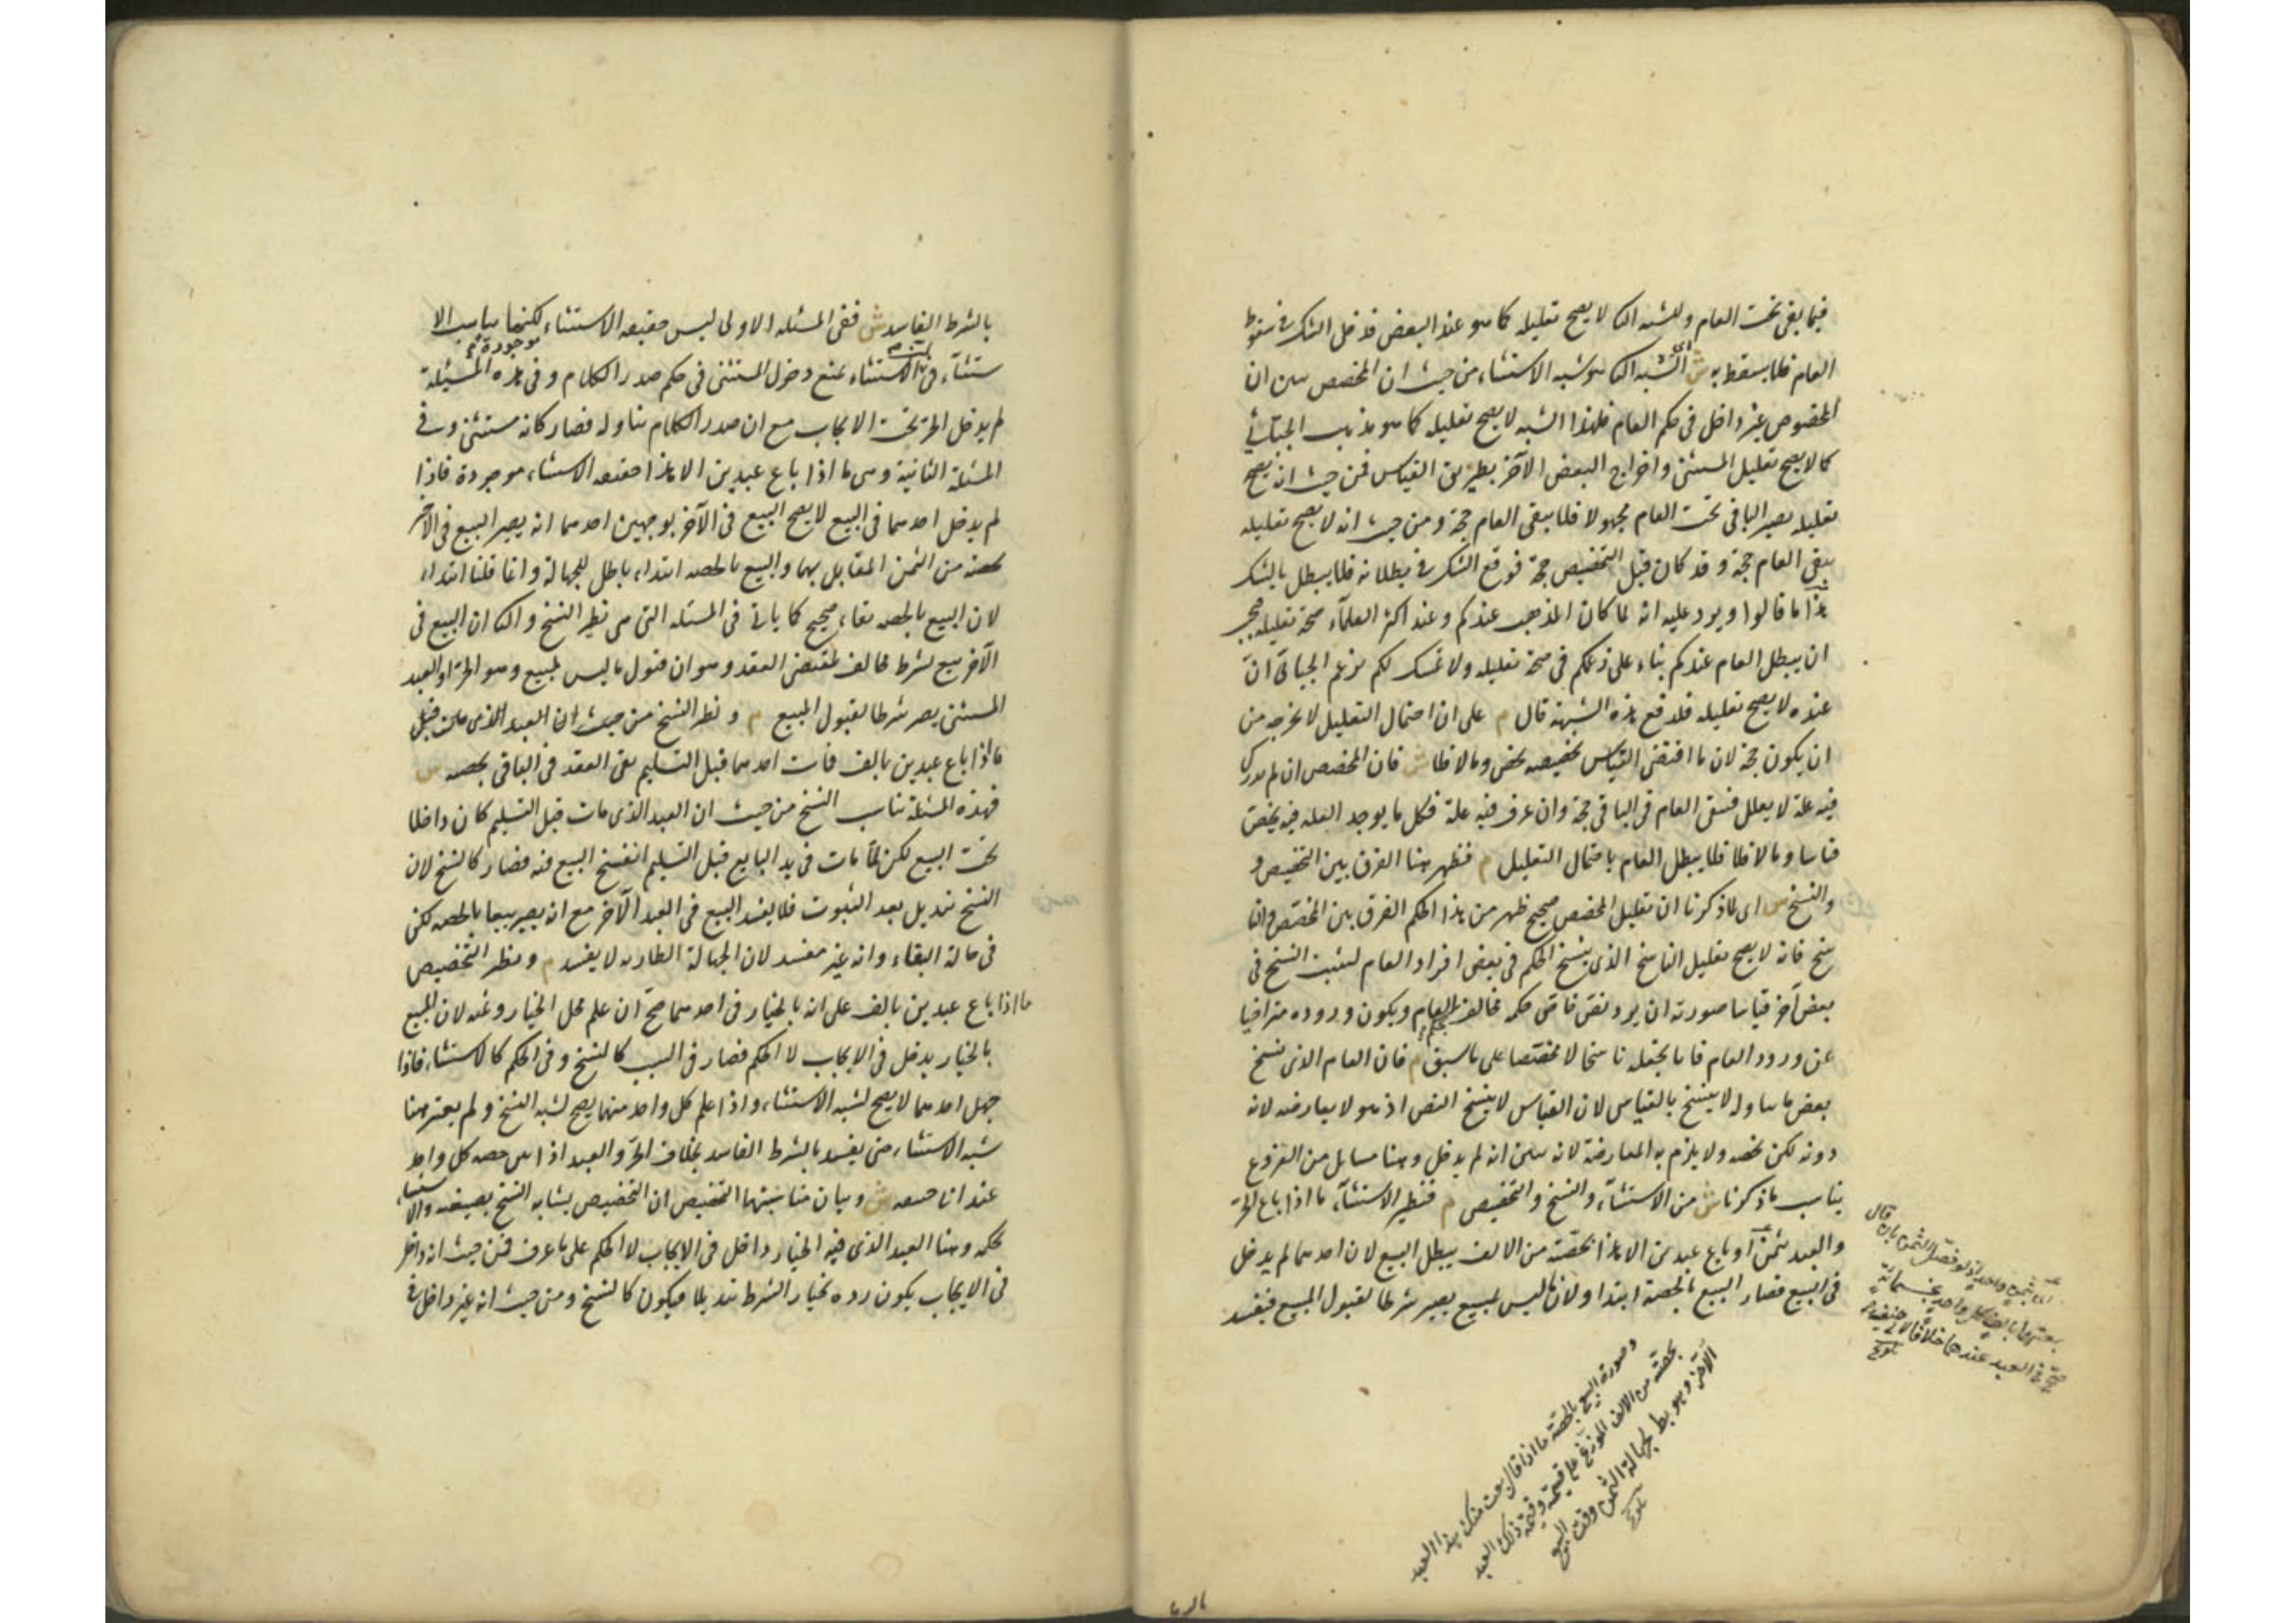 فيما بقى تحت العام وللشبه الثا لا يصح تعليله كما هو عند البعض فدخل الشك في سقوط
العام فلا يسقط به ش اى الشبه الثا هو شبه الاستثناء من حيث ان المخصص يبين ان
المخصوص غير داخل فى حكم العام فلهذا الشبه لا يصح تعليله كما هو مذهب الجبائي
كما لا يصح تعليل المستثنى واخراج البعض الآخر بطريق القياس فمن حيث انه يصح
تعليله يصير الباقى تحت العام مجهولا فلا يبقى العام حجة ومن حيث انه لا يصح تعليله
يبقى العام حجة وقد كان قبل التخصيص حجة فوقع الشك فى بطلانه فلا يبطل بالشك
هذا ما قالوا ويرد عليه انه لما كان المذهب عندكم وعند اكثر العلماء صحة تعليله فيجب
ان يبطل العام عندكم بناء على زعمكم فى صحة تعليله ولا تمسك لكم بزعم الجبائى ان
عنده لا يصح تعليله فلدفع هذه الشبهة قال م على ان احتمال التعليل لا يخرجه من
ان يكون حجة لان ما اقتضى القياس تخصيصه يخص وما لا فلا ش فان المخصص ان لم يدرك
فيه علة لا يعلل فيبقى العام فى الباقى حجة وان عرف فيه علة فكل ما يوجد العله فيه يخص
قياسا وما لا فلا فلا يبطل العام باحتمال التعليل م فظهر هنا الفرق بين التخصيص و
والنسخ ش اى لما ذكرنا ان تعليل المخصص صحيح ظهر من هذا الحكم الفرق بين المخصص والنا
سخ فانه لا يصح تعليل الناسخ الذى ينسخ الحكم فى بعض افراد العام ليثبت النسخ فى
بعض آخر قياسا صورته ان يرد نص خاص حكمه مخالف لحكم العام ويكون وروده متراخيا
عن ورود العام فانا نجعله ناسخا لا مخصصا على ما سبق م فان العام الذى نسخ
بعض ما تناوله لا ينسخ بالقياس لان القياس لا ينسخ النص اذ هو لا يعارضه لانه
دونه لكن يخصه ولا يلزم به المعارضة لانه يبين انه لم يدخل وهنا مسايل من الفروع
يناسب ما ذكرنا ش من الاستثناء والنسخ والتخصيص م فنظير الاستثناء ما اذا باع الحر
والعبد بثمن او باع عبدين الا هذا بحصته من الالف يبطل البيع لان احدهما لم يدخل
فى البيع فصار البيع بالحصة ابتداء ولان ما ليس بمبيع يصير شرطا لقبول المبيع فيفسد
اى بثمن واحد اذ لو فصل الثمن بان قال
بعتهما بالف كل واحد بخمسمائة
صح فى العبد عندهما خلافا لابى حنيفة
تلويح
وصورة البيع بالحصة ما اذا قال بعت منك هذا العبد
بحصته من الالف الموزع على قيمته وقيمة ذلك العبد
الآخر وهو بط لجهالة الثمن وقت البيع
تلويح
بالشرط الفاسد ش ففى المسئلة الاولى ليس حقيقه الاستثناء موجودة لكنها يناسب الا
ستثناء فى ان الاستثناء يمنع دخول المستثنى فى حكم صدر الكلام وفى هذه المسئلة
لم يدخل الحر تحت الايجاب مع ان صدر الكلام تناوله فصار كانه مستثنى وفى
المسئلة الثانية وهى ما اذا باع عبدين الا هذا حقيقه الاستثناء موجودة فاذا
لم يدخل احدهما فى البيع لا يصح البيع فى الآخر بوجهين احدهما انه يصير البيع فى الآخر
بحصته من الثمن المقابل بهما والبيع بالحصه ابتداء باطل للجهالة وانما قلنا ابتداء
لان البيع بالحصه بقاء صحيح كما ياتى فى المسئله التى هى نظير النسخ والثا ان البيع فى
الآخر بيع بشرط مخالف لمقتضى العقد وهو ان قبول ما ليس بمبيع وهو الحر او العبد
المستثنى يصير شرطا لقبول المبيع م ونظير النسخ من حيث ان العبد الذى مات قبل
ما اذا باع عبدين بالف فمات احدهما قبل التسليم يبقى العقد فى الباقى بحصه ش
فهذه المسئلة تناسب النسخ من حيث ان العبد الذى مات قبل التسليم كان داخلا
تحت البيع لكن لما مات فى يد البايع قبل التسليم انفسخ البيع فيه فصار كالنسخ لان
النسخ تبديل بعد الثبوت فلا يفسد البيع فى العبد الآخر مع انه يصير بيعا بالحصه لكن
فى حالة البقاء وانه غير مفسد لان الجهالة الطاريه لا يفسد م ونظير التخصيص
ما اذا باع عبدين بالف على انه بالخيار فى احدهما صح ان علم محل الخيار وثمنه لان المبيع
بالخيار يدخل فى الايجاب لا الحكم فصار فى السبب كالنسخ وفى الحكم كالاستثناء فاذا
جهل احدهما لا يصح لشبه الاستثناء واذا علم كل واحد منهما يصح لشبه النسخ ولم يعتبر هنا
شبه الاستثناء حتى يفسد بالشرط الفاسد بخلاف الحر والعبد اذا بين حصه كل واحد
عند ابى حنيفه ش وبيان مناسبتها التخصيص ان التخصيص يشابه النسخ بصيغته والاستثناء
بحكمه وهنا العبد الذى فيه الخيار داخل فى الايجاب لا الحكم على ما عرف فمن حيث انه داخل
فى الايجاب يكون رده بخيار الشرط تبديلا فيكون كالنسخ ومن حيث انه غير داخل فى